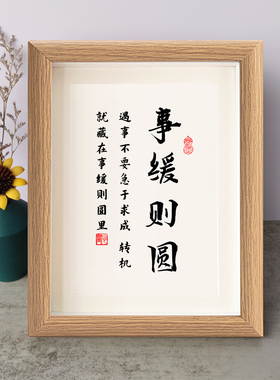 事缓则圆
遇事不要急于求成 转机
就藏在事缓则圆里